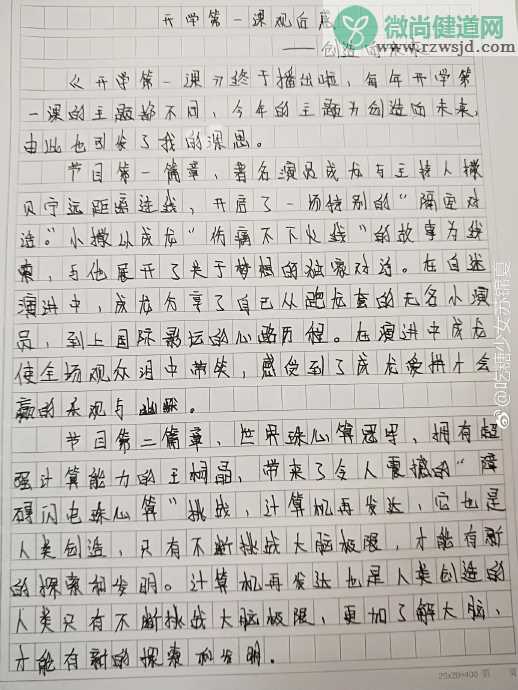 微尚健道网
www.rzwsjd.com
开学第一课观后感
——创造向未来
《开学第一课》终于播出啦，每年开学第
一课的主题都不同，今年的主题为创造向未来，
由此也引发了我的深思。
节目第一篇章，著名演员成龙与主持人撒
贝宁远距离连线，开启了一场特别的“隔空对
话。”小撒以成龙“伤痛不下火线”的故事为线
索，与他展开了关于梦想的独家对话。在自述
演讲中，成龙分享了自己从跑龙套的无名小演
员，到上国际影坛的心路历程。在演讲中成龙
使全场观众泪中带笑，感受到了成龙爱拼才会
赢的乐观与幽默。
节目第二篇章，世界珠心算冠军，拥有超
强计算能力的王桐晶，带来了令人震撼的“障
碍闪电珠心算”挑战，计算机再发达，它也是
人类创造，只有不断挑战大脑极限，才能有新
的探索和发明。计算机再发达也是人类创造的
人类只有不断挑战大脑极限，更加了解大脑，
才能有新的探索和发明。
@吃糖少女苏锦夏
20x20=400 第 页